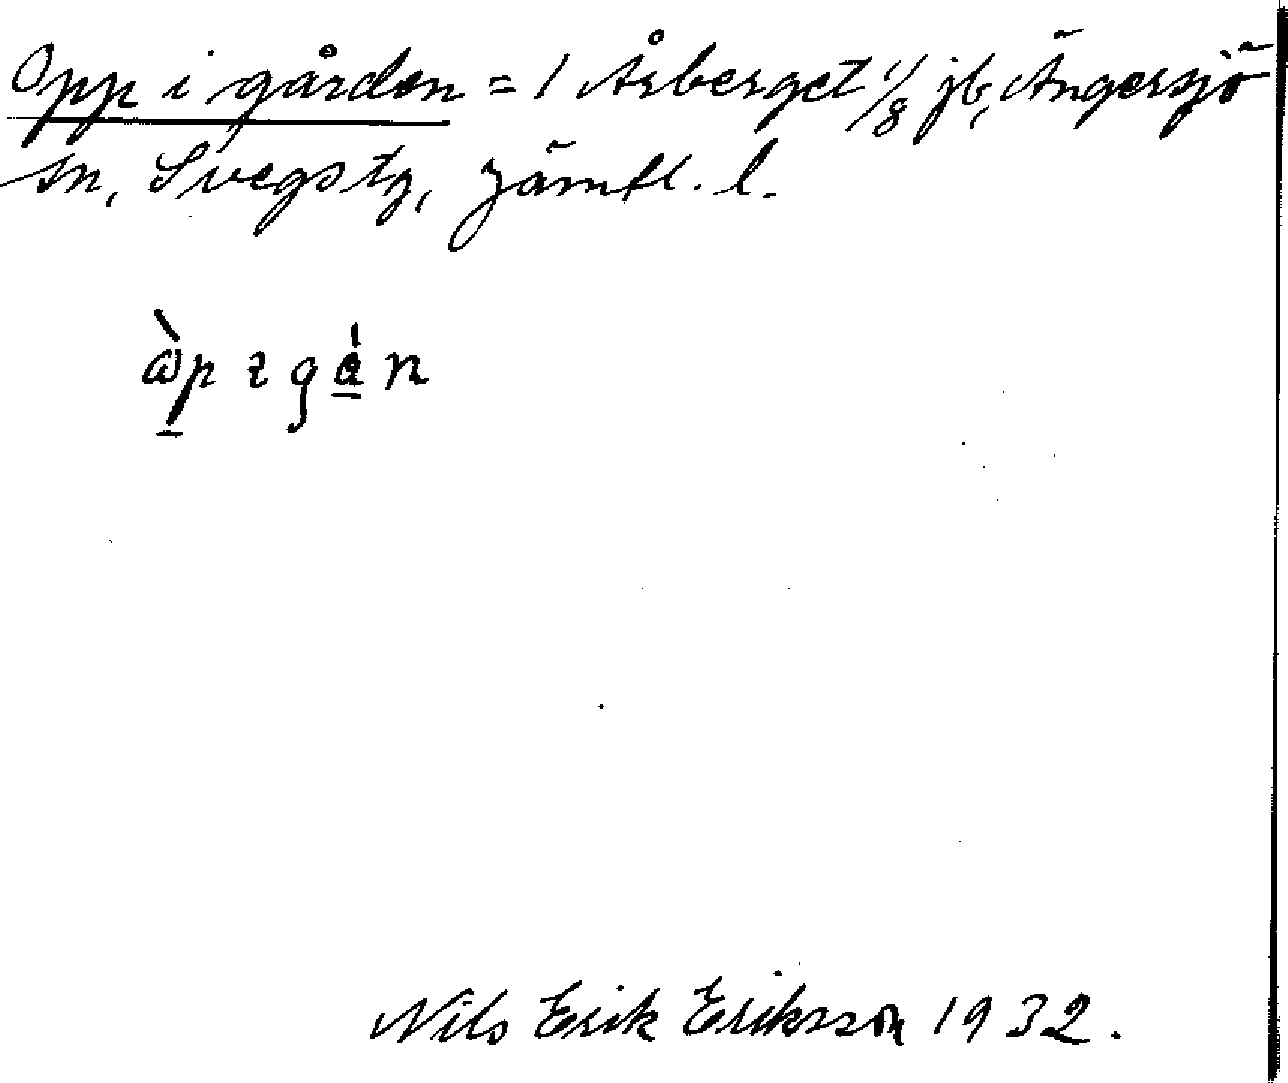 Opp i gården = 1 Årberget 1/8 jb, Ängersjö
sn, Svegs tg, Jämtl. l.
Nils Erik Eriksson 1932.